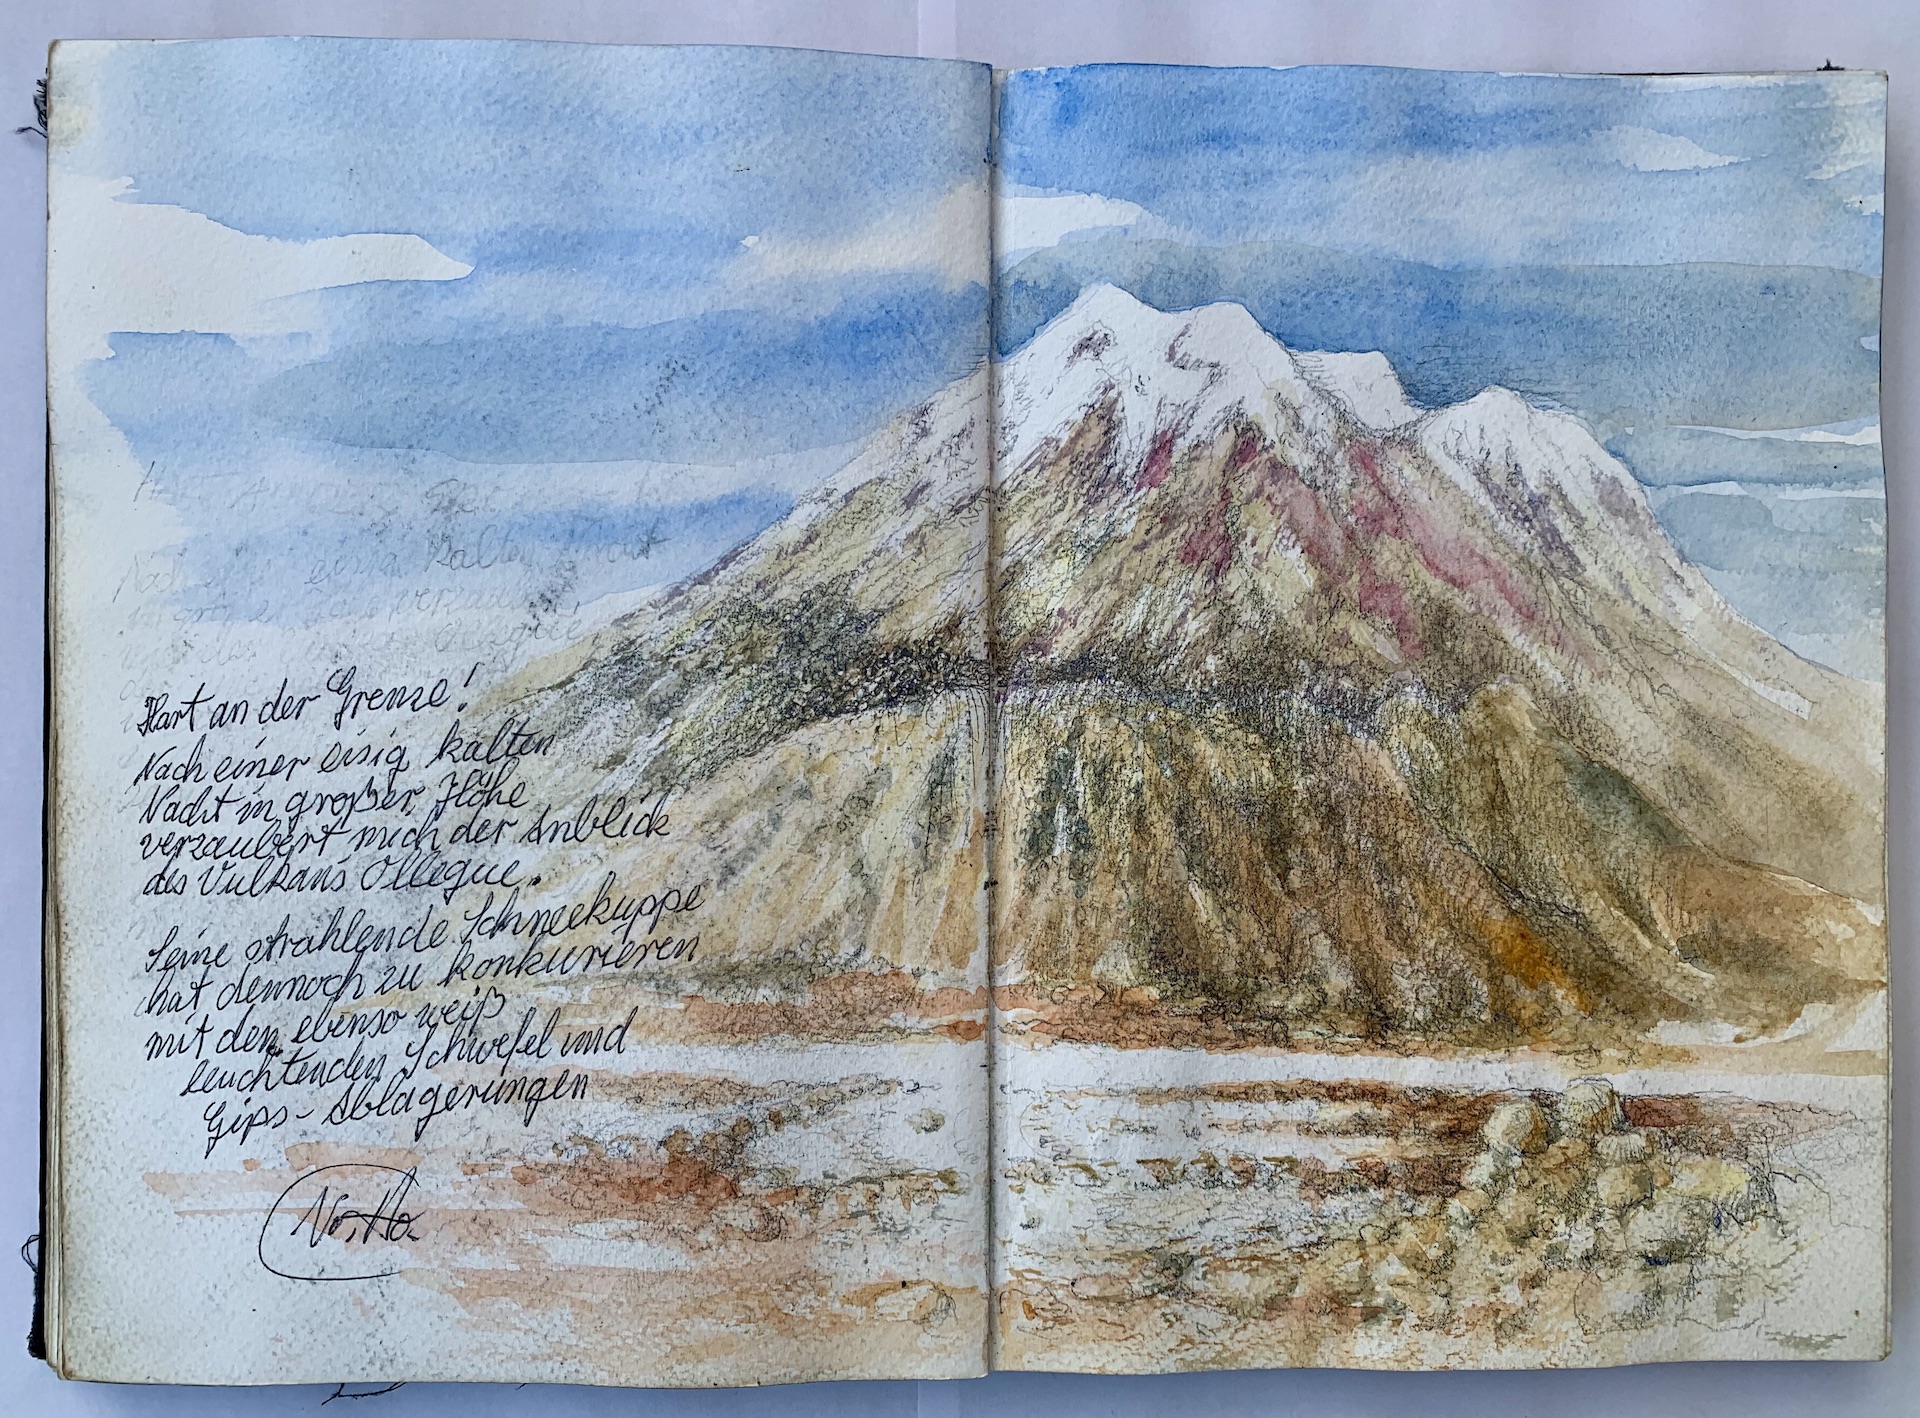 Hart an der Grenze!
Nach einer eisig kalten
Nacht in großer Höhe
verzaubert mich der Anblick
des Vulkans Ollegue.
Seine strahlende Schneekuppe
hat dennoch zu konkurieren
mit den ebenso weiß
leuchtenden Schwefel und
Gips-Ablagerungen